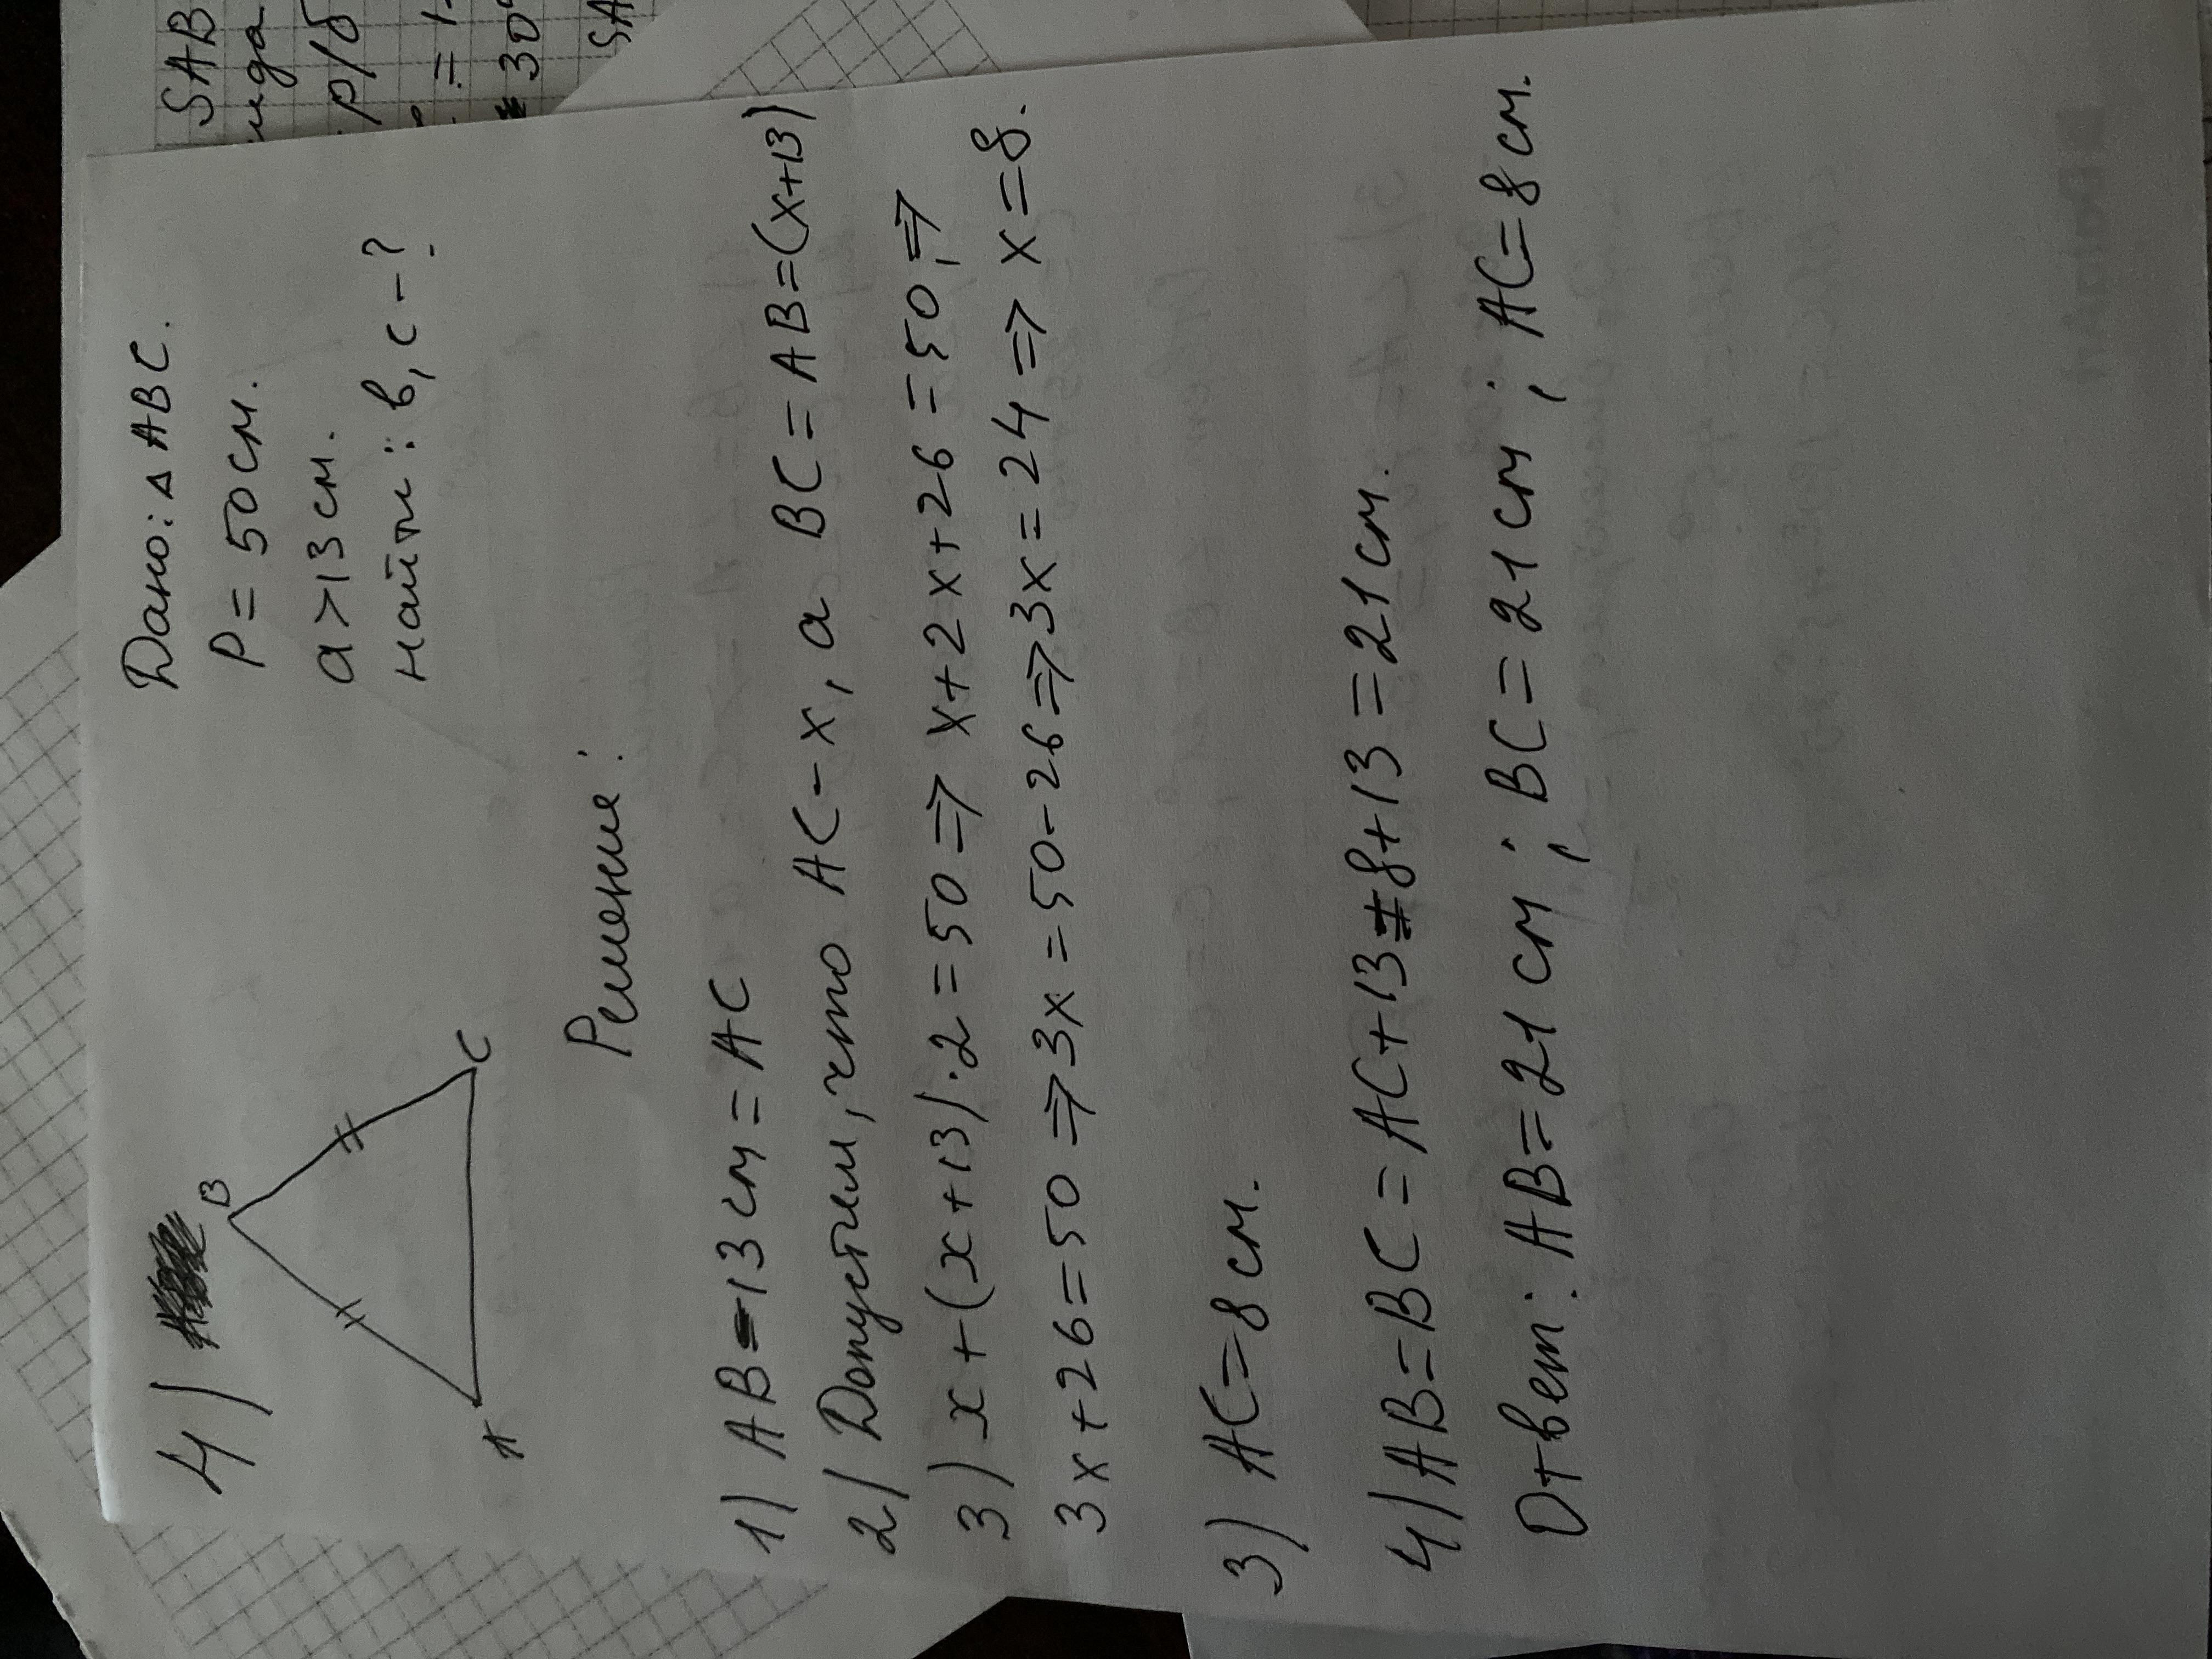 SAB
ида
P/б
= 1
30°
SA
4)
B
A
C
Дано: △ ABC.
P = 50 см.
a > 13 см.
Найти: в, с - ?
Решение:
1) AB - 13 см = AC
2) Допустим, что AC - x, а BC = AB = (x+13)
3) x + (x+13) · 2 = 50 => x + 2x + 26 = 50, =>
3x + 26 = 50 => 3x = 50 - 26 => 3x = 24 => x = 8.
3) AC = 8 см.
4) AB = BC = AC + 13 = 8 + 13 = 21 см.
Ответ: AB = 21 см ; BC = 21 см ; AC = 8 см.